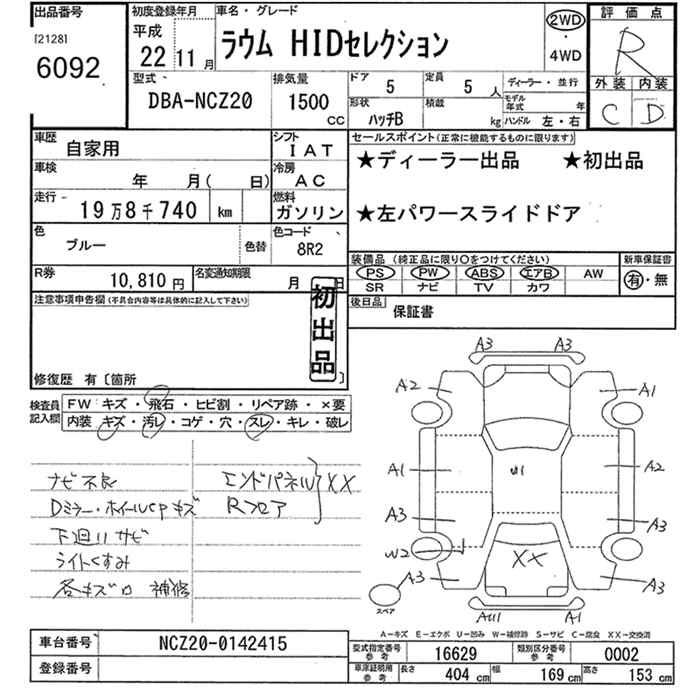 出品番号
[2128]
6092
初度登録年月
平成
22年 11月
車名・グレード
ラウム HIDセレクション
2WD
・
4WD
評価点
R
外装 内装
C D
型式
DBA-NCZ20
排気量
1500
CC
ドア 5
定員 5 人
ディーラー・並行
形状 ハッチB
積載 kg
モデル年式 年
ハンドル 左・右
車歴 自家用
シフト IAT
車検 年 月( 日)
冷房 AC
走行 19万8千740 km
燃料 ガソリン
色 ブルー 色替
色コード 8R2
R券 10,810円
名変通知期限 月 日
セールスポイント(正常に機能するものに限ります)
★ディーラー出品 ★初出品
★左パワースライドドア
装備品 (純正品に限り○をつけてください)
新車保証書
PS PW ABS エアB AW
SR ナビ TV カワ
有・無
後日品 保証書
注意事項申告欄(不具合内容等は具体的に記入して下さい)
初出品
修復歴 有〔箇所 〕
検査員記入欄
FW キズ・飛石・ヒビ割・リペア跡・×要
内装 キズ・汚レ・コゲ・穴・スレ・キレ・破レ
ナビ不良 エンドパネル XX
Dミラー・ホイールcpキズ Rフロア
下廻りサビ
ライトくすみ
各キズロ 補修
A3 A3
A2 A1
A1 U1 A2
A3 A3
W2 XX
A3 A3
スペア
AU1 A1
A―キズ E―エクボ U―凹み W―補修跡 S―サビ C―腐食 XX―交換済
車台番号 NCZ20-0142415
登録番号
型式指定番号 参考 16629
類別区分番号 参考 0002
車庫証明用 参考 長さ 404 cm 幅 169 cm 高さ 153 cm